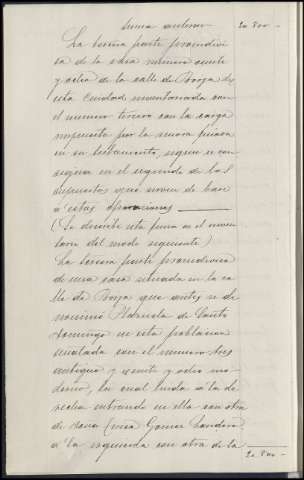 Suma anterior 20 800 -
La tercera parte proindivi
sa de la casa numero veinte
y ocho de la calle de Borja de
esta Ciudad, inventariada con
el numero tercero con la carga
impuesta por la misma finada
en su testamento, segun se con
signa en el segundo de los
supuestos que sirven de base
a estas operaciones
(Se describe esta finca en el inven
tario del modo siguiente)
La tercera parte proindivisa
de una casa situada en la ca
lle de Borja que antes se de
nominó Plazuela de Santo
Domingo en esta poblacion
señalada con el numero tres
antiguo y veinte y ocho mo
derno, la cual linda á la de
recha entrando en ella con otra
de Doña Luisa Gomez
á la izquierda con otra de la
20 800 -